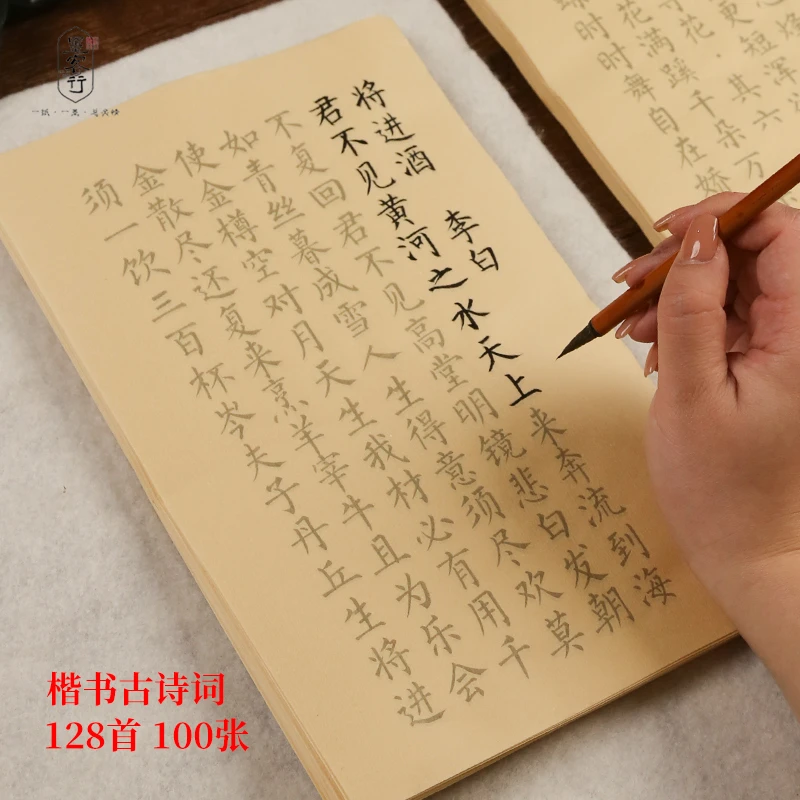 将进酒 李白
君不见黄河之水天上来奔流到海
不复回君不见高堂明镜悲白发朝
如青丝暮成雪人生得意须尽欢莫
使金樽空对月天生我材必有用千
金散尽还复来烹羊宰牛且为乐会
须一饮三百杯岑夫子丹丘生将进
更短浑
花·其六
花满蹊千朵万
时时舞自在娇
楷书古诗词
128首 100张